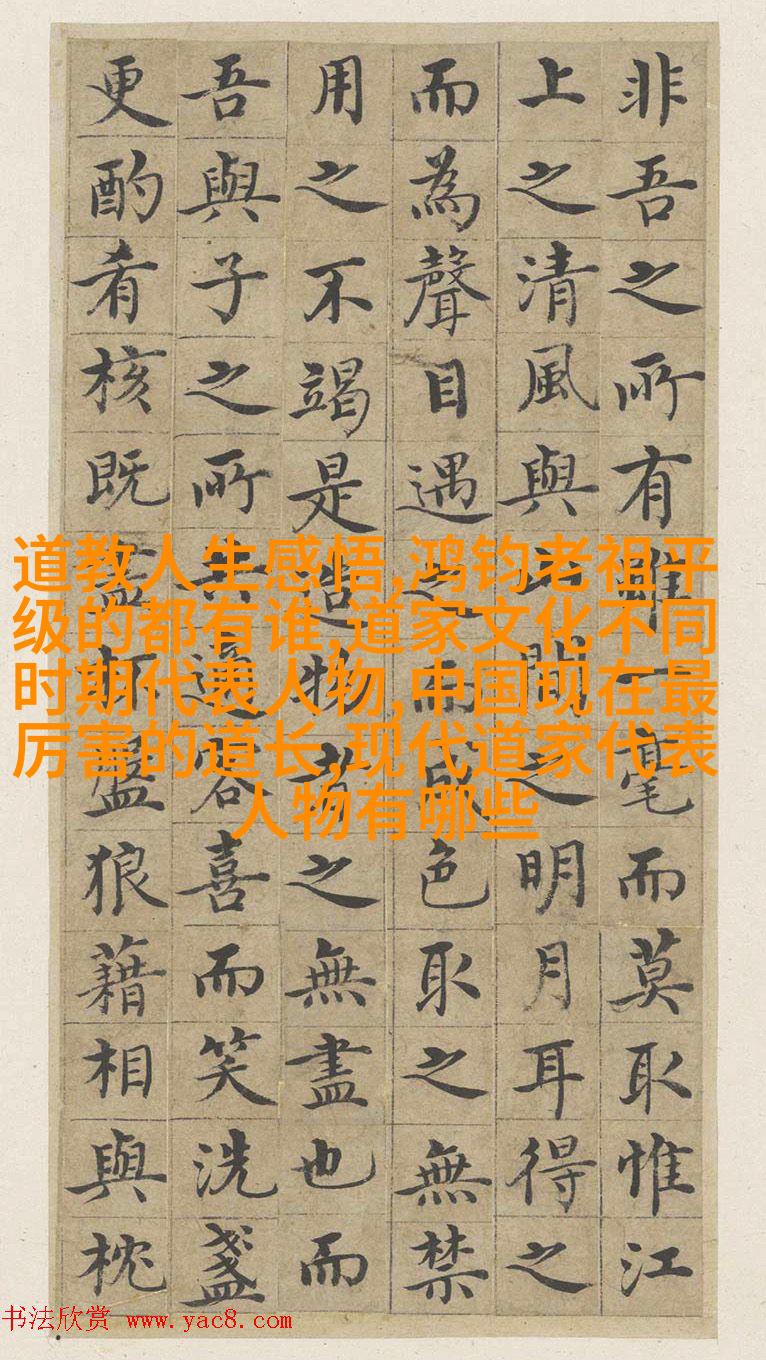 非吾之所有雖一毫而莫取惟江
上之清風與山間之明月耳得之
而為聲目遇之而成色取之無禁
用之不竭是造物者之無盡也而
吾與子之所共適客喜而笑洗盞
更酌肴核既盡杯盤狼藉相與枕
道教人生感悟,鸿钧老祖平
级的都有谁,道家文化不同
时期代表人物,中国现在最
厉害的道长,现代道家代表
人物有哪些
书法欣赏 www.yac8.com